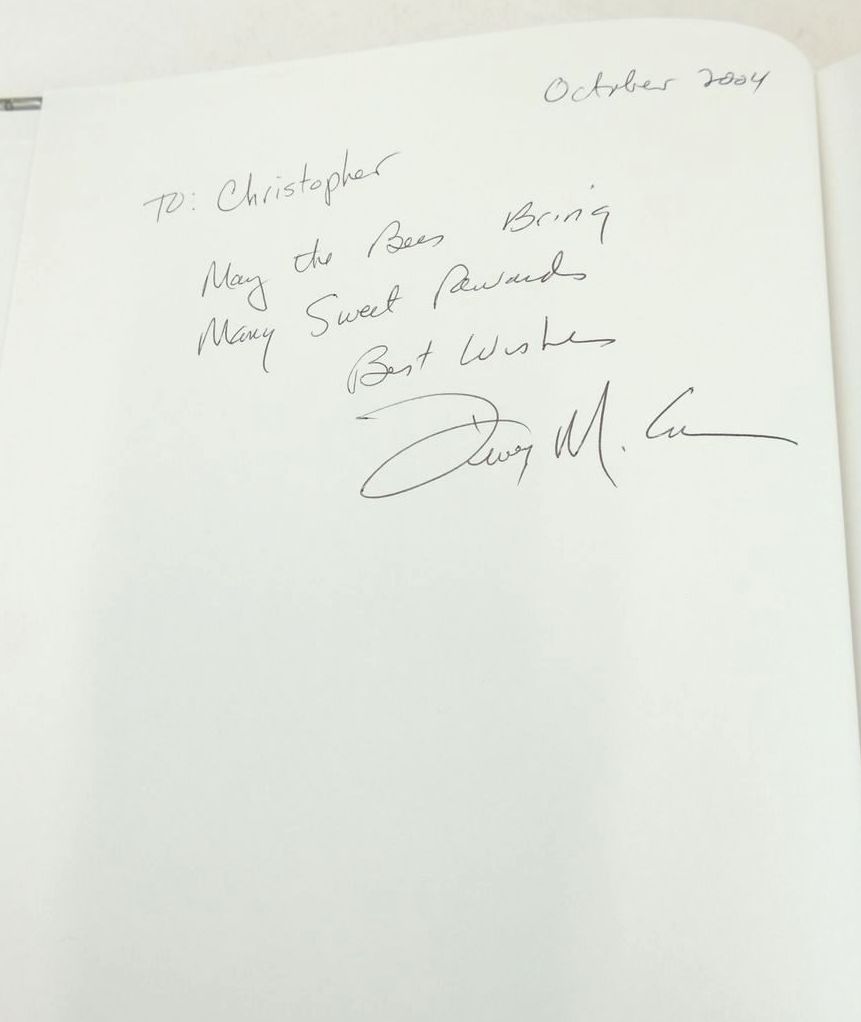 October 2004
To: Christopher
May the Bees Bring
Many Sweet Rewards
Best Wishes
Dewey M.